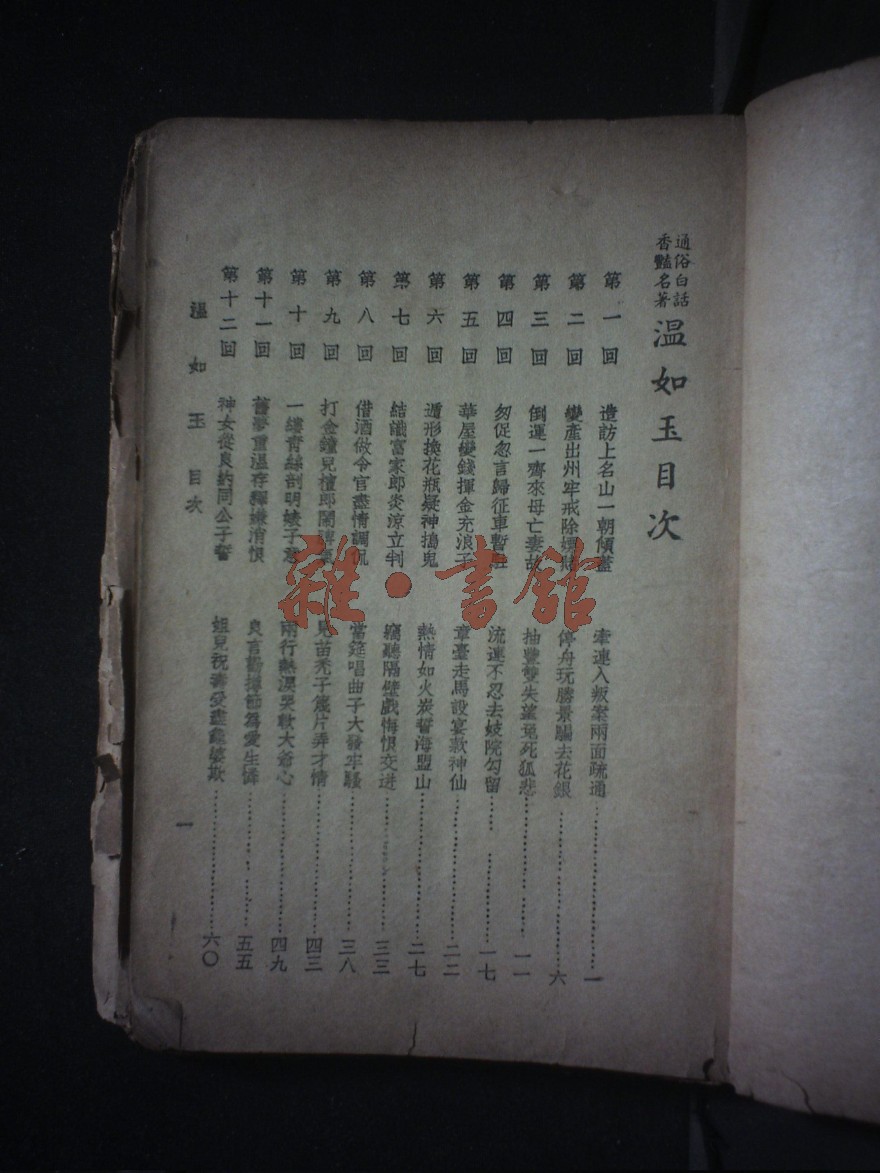 通俗白話
香豔名著
溫如玉目次
第一回 造訪上名山一朝傾蓋 牽連入叛案兩面疏通 一
第二回 變產出州牢戒除嫖賭 停舟玩勝景騙去花銀 六
第三回 倒運一齊來母亡妻故 抽豐雙失望兔死狐悲 一一
第四回 匆促忽言歸征車暫駐 流連不忍去妓院勾留 一七
第五回 華屋變錢揮金充浪子 章臺走馬設宴款神仙 二二
第六回 遁形換花瓶疑神搗鬼 熱情如火炭誓海盟山 二七
第七回 結識富家郎炎涼立判 竊聽隔壁戲悔恨交迸 三三
第八回 借酒做令官盡情調侃 當筵唱曲子大發牢騷 三八
第九回 打金鐘兒檀郎鬧 見苗禿子篾片弄才情 四三
第十回 一縷青絲剖明婊子意 兩行熱淚哭軟大爺心 四九
第十一回 舊夢重溫存釋嫌消恨 良言勸撙節爲愛生憐 五五
第十二回 神女從良納同公子誓 姐兒祝壽受 婆欺 六〇
溫如玉 目次
一
雜·書館